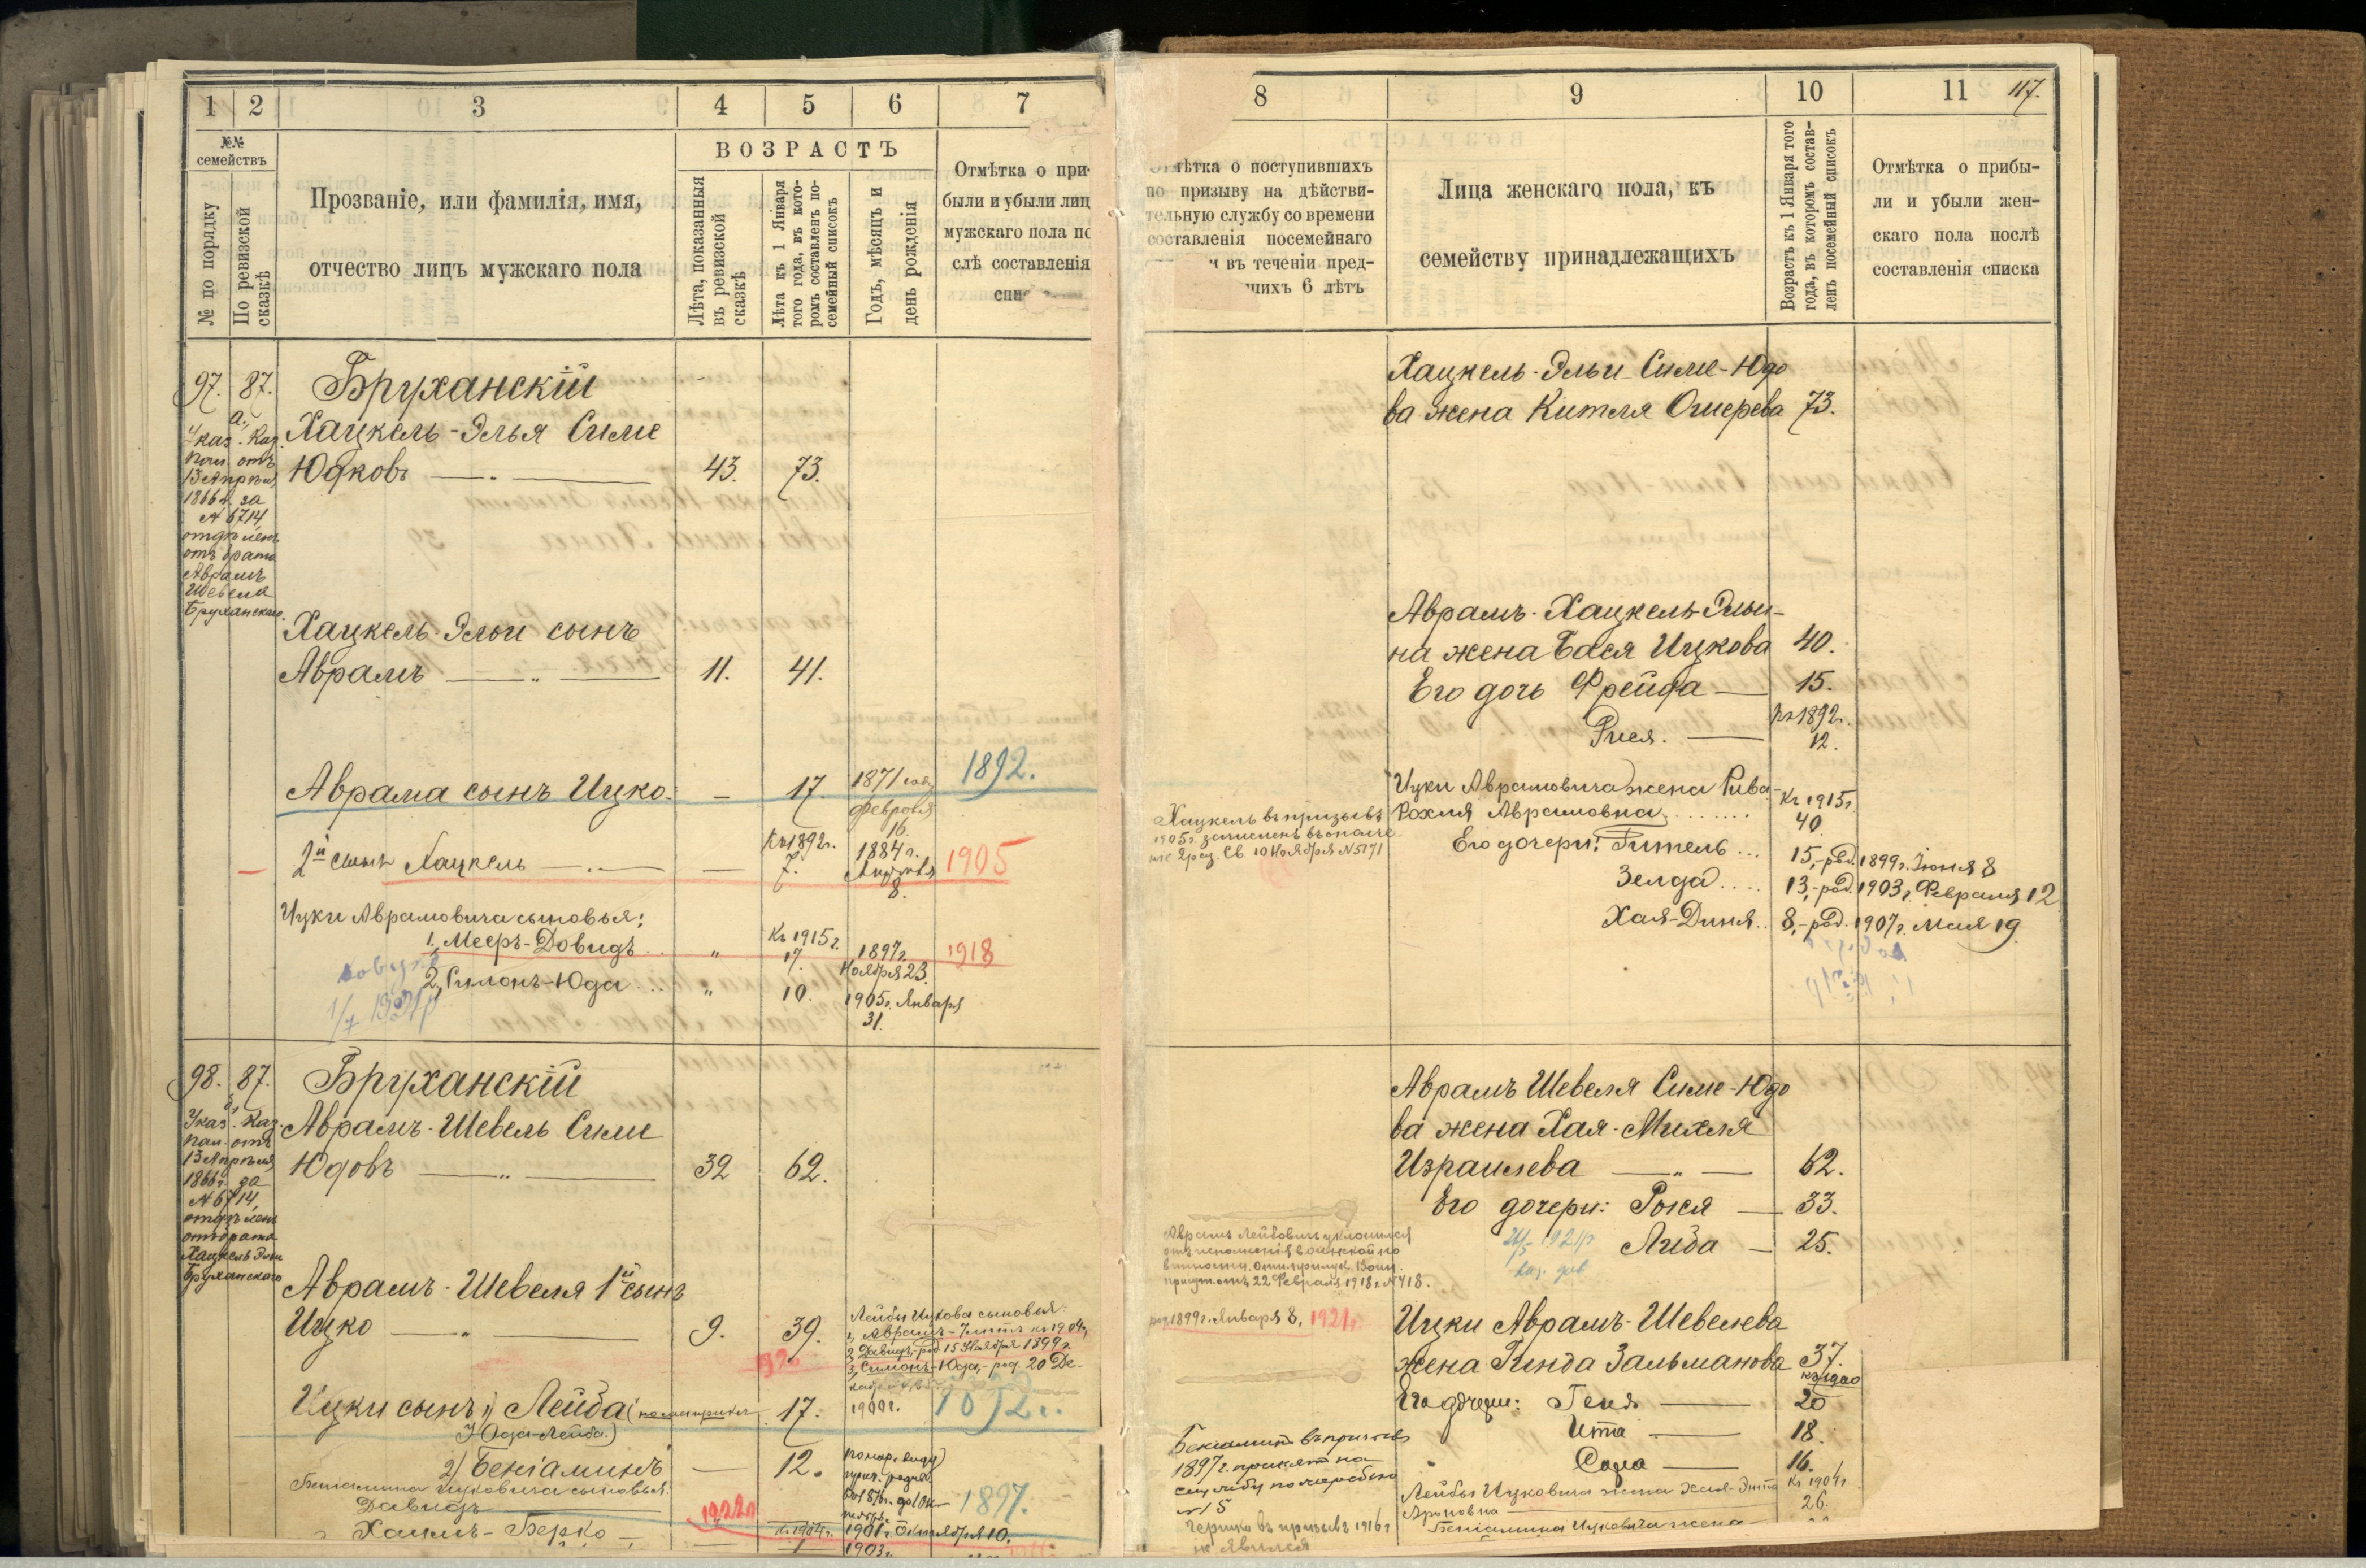 1 2 3 4 5 6 7
№№ семействъ
№ по порядку
По ревизской сказкѣ
Прозваніе, или фамилія, имя,
отчество лицъ мужскаго пола
ВОЗРАСТЪ
Лѣта, показанныя
въ ревизской
сказкѣ
Лѣта къ 1 Января
того года, въ кото-
ромъ составленъ по-
семейный списокъ
Годъ, мѣсяцъ и
день рожденія
Отмѣтка о при-
были и убыли лиц
мужскаго пола по
слѣ составленія
97. 87. Бруханскій
а.
Указ. Каз. Хацкель-Элья Симе
пал. отъ Юдковъ 43. 73.
13 Апрѣля
1866 г. за
№ 6714
отдѣленъ
отъ брата
Аврамъ
Шевеля
Бруханскаго.
Хацкель-Эльи сынъ
Аврамъ 11. 41.
Аврама сынъ Ицко - 17. 1871 года 1892.
февраля
16.
2й сынъ Хацкель — къ 1892 г. 7. 1884 г. 1905
8.
Ицки Аврамовича сыновья:
1, Мееръ-Довидъ.. " Къ 1915 г. 17. 1897 г. 1918
Ноября 23.
2, Симонъ-Юда... " 10. 1905 г. Января
31.
98. 87. Бруханскій
Указ. Каз. Аврамъ-Шевель Симе
пал. отъ Юдовъ 32 62.
13 Апрѣля
1866 г. за
№ 6714
отдѣленъ
отъ брата
Хацкель Эльи
Бруханскаго
Аврамъ-Шевеля 1й сынъ
Ицко 9. 39.
Лейбы Ицкова сыновья:
2, Давидъ, род. 15 Ноября 1899 г.
3, Симонъ-Юда, - род. 20 Де-
1900 г.
Ицки сынъ 1) Лейба 17.
Юда-Лейба.)
2) Беніаминъ — 12. 1897.
Беніамина Ицковича сыновья:
Давидъ 1922 г. къ 1904 г. 1901 г. Октября 10.
Хаимъ-Берко — 1 1903 г.
8 9 10 11 117.
Отмѣтка о поступившихъ
по призыву на дѣйстви-
тельную службу со времени
составленія посемейнаго
и въ теченіи пред-
шихъ 6 лѣтъ
Лица женскаго пола, къ
семейству принадлежащихъ
Возрастъ къ 1 Января того
года, въ которомъ состав-
ленъ посемейный списокъ
Отмѣтка о прибы-
ли и убыли жен-
скаго пола послѣ
составленія списка
Хацкель-Эльи Симе-Юдо
ва жена Китля Ошерева 73.
Аврамъ-Хацкель-Эльи-
на жена Бася Ицкова 40.
Его дочь Фрейда — 15.
къ 1892 г.
Рися. — 12.
Ицки Аврамовича жена Рива-
Рохля Аврамовна........ Къ 1915 г. 40.
Хацкель въ призывъ
1905 г. зачисленъ въ ополче
ніе 2 раз. Св. 10 Ноября № 5171
Его дочери: Гитель... 15, - род. 1899 г. Іюня 8
Зелда.... 13, - род. 1903 г. Февраля 12
Хая-Диня.. 8, - род. 1907 г. Мая 19.
Аврамъ Шевеля Симе-Юдо
ва жена Хая-Михля
Израилева 62.
Его дочери: Рохля — 33.
Либа — 25.
Аврамъ Лейбовичъ уклонился
отъ исполненія воинской по
винности.
прис. отъ 22 Февраля 1918 г. № 418.
род. 1899 г. Января 8, 1921 г.
Ицки Аврамъ-Шевелева
жена Гинда Зальманова 37.
Его дочери: Геня — 20
Ита — 18.
" Сора — 16.
Беніаминъ въ призывъ
1897 г. принятъ на
службу по жеребью
№ 15
Лейбы Ицковича жена Хая-Энта Къ 1904 г.
Ароновна 26.
Беніамина Ицковича жена
въ призывъ 1916 г.
не явился